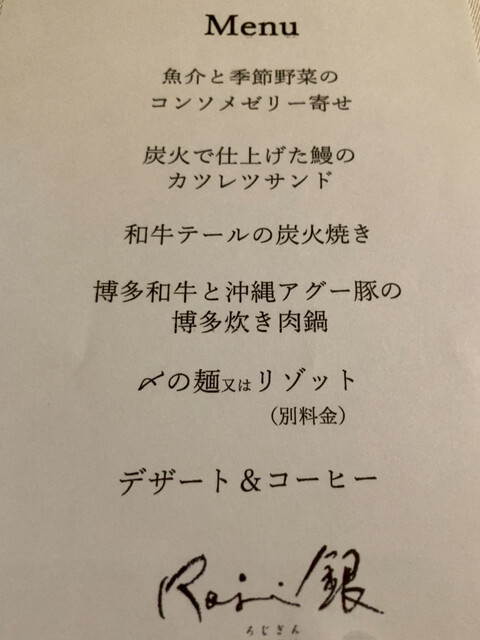 Menu
魚介と季節野菜の
コンソメゼリー寄せ
炭火で仕上げた鰻の
カツレツサンド
和牛テールの炭火焼き
博多和牛と沖縄アグー豚の
博多炊き肉鍋
〆の麺又はリゾット
(別料金)
デザート&コーヒー
Roji銀
ろじぎん